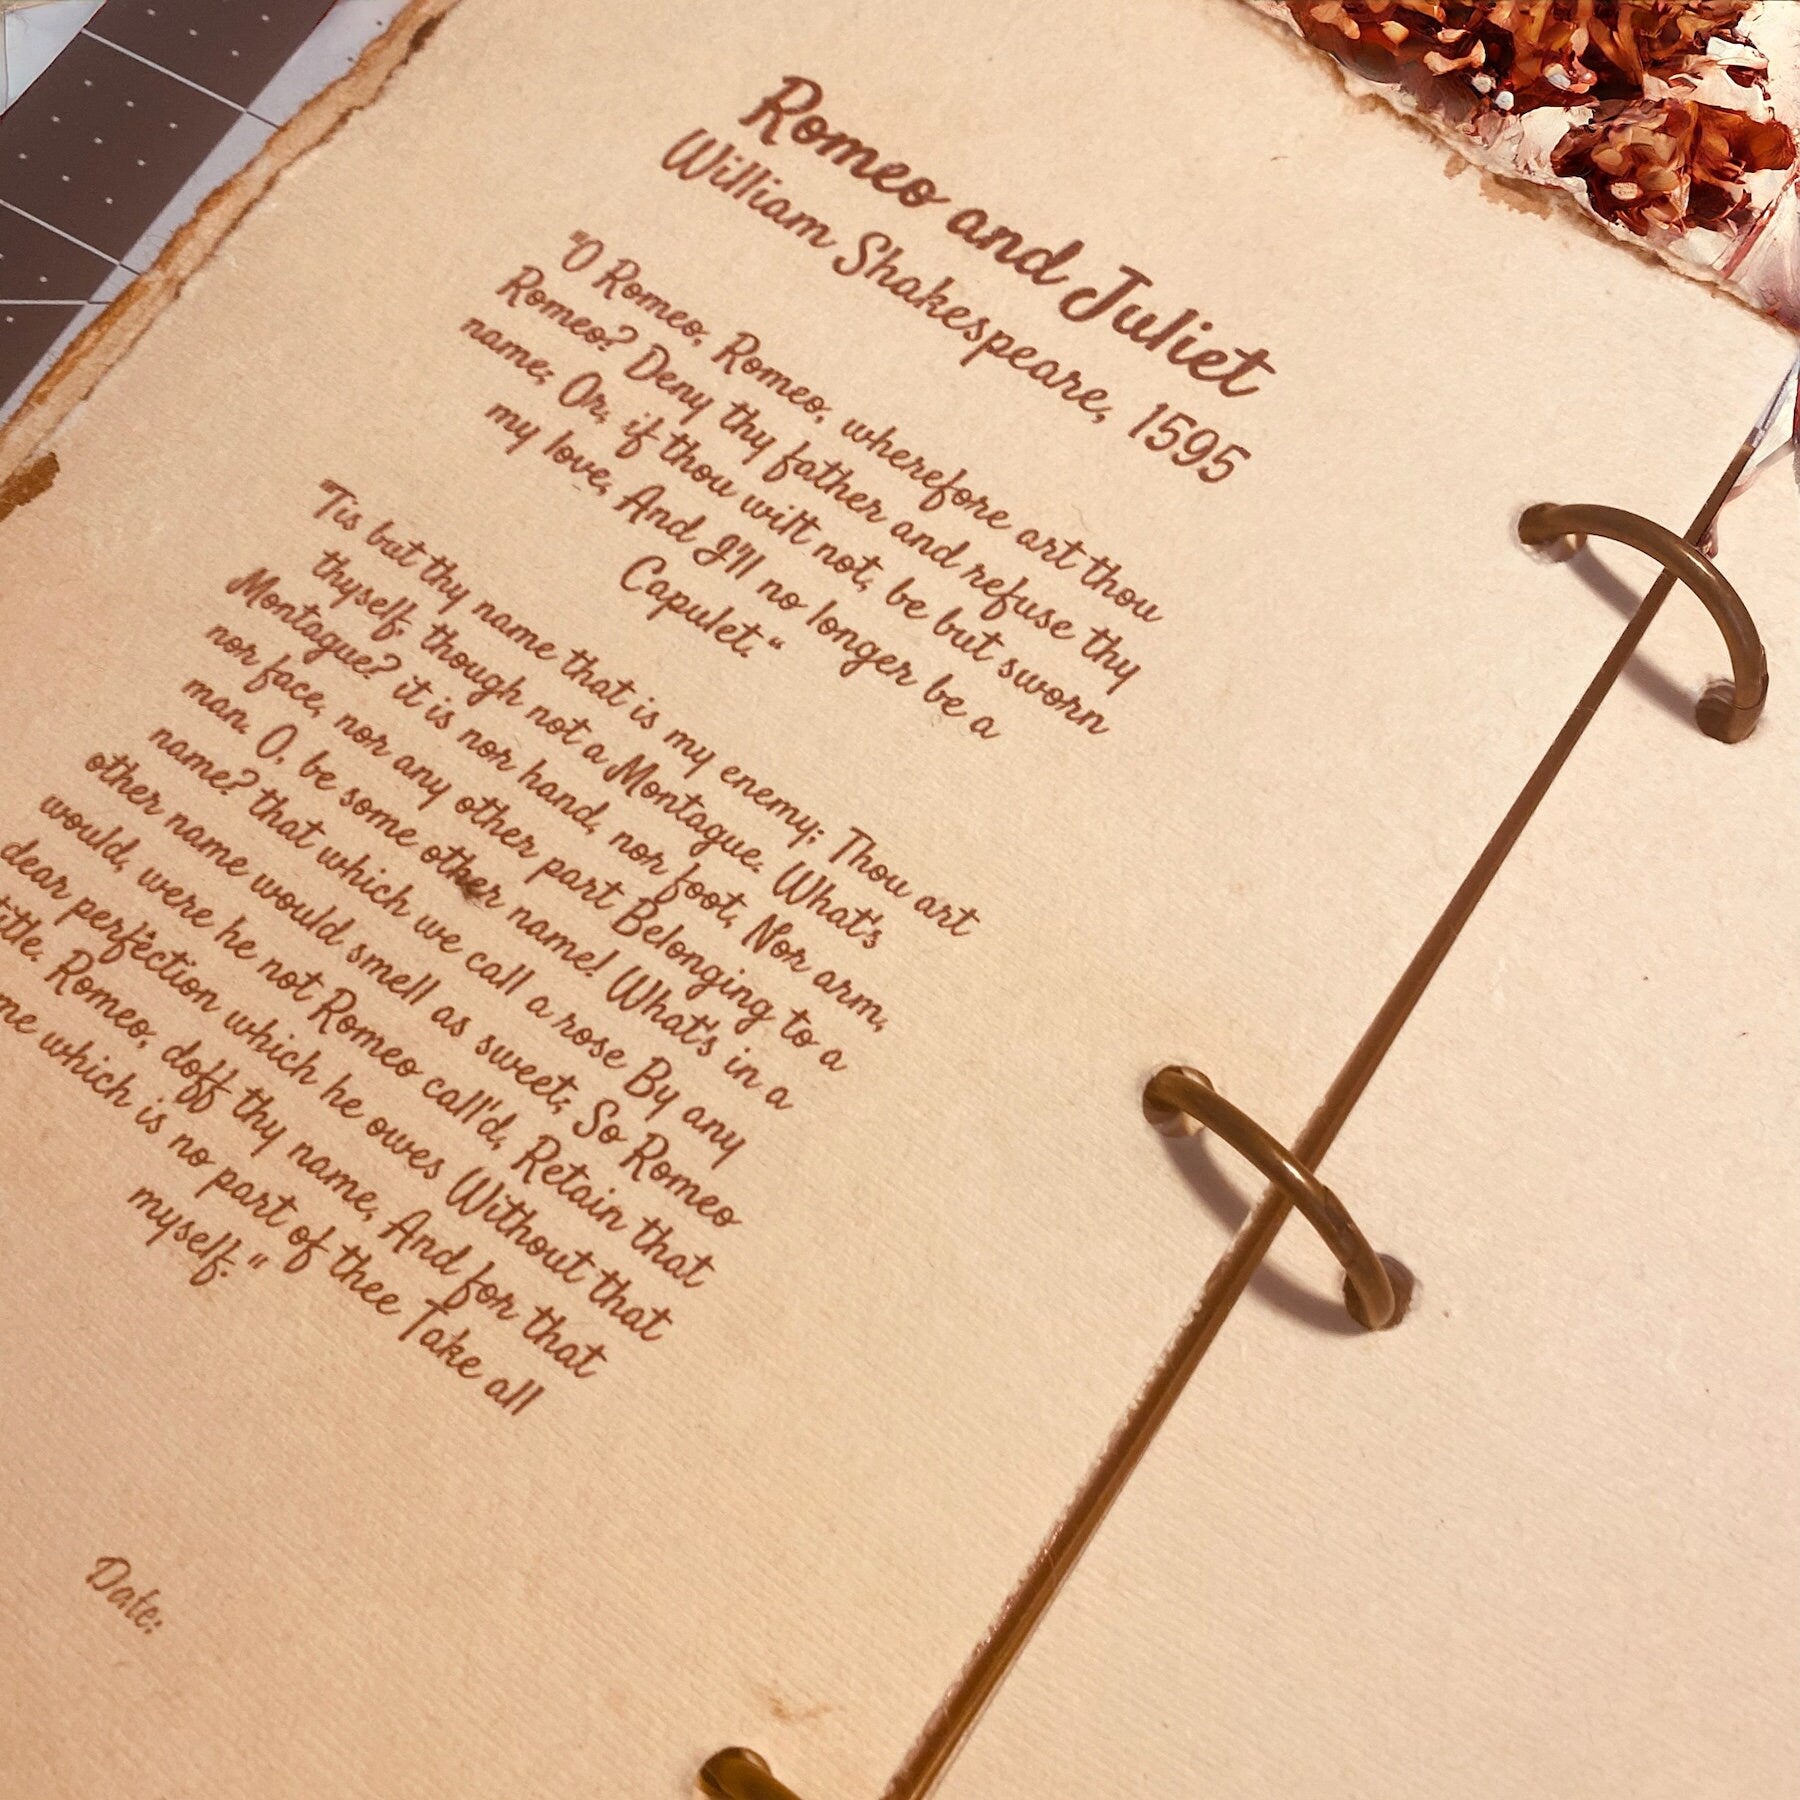 Romeo and Juliet
William Shakespeare, 1595
"O Romeo, Romeo, wherefore art thou
Romeo? Deny thy father and refuse thy
name; Or, if thou wilt not, be but sworn
my love, And I'll no longer be a
Capulet."
"Tis but thy name that is my enemy; Thou art
thyself, though not a Montague. What's
Montague? it is nor hand, nor foot, Nor arm,
nor face, nor any other part Belonging to a
man. O, be some other name! What's in a
name? that which we call a rose By any
other name would smell as sweet; So Romeo
would, were he not Romeo call'd, Retain that
dear perfection which he owes Without that
Romeo, doff thy name, And for that
which is no part of thee Take all
myself."
Date: